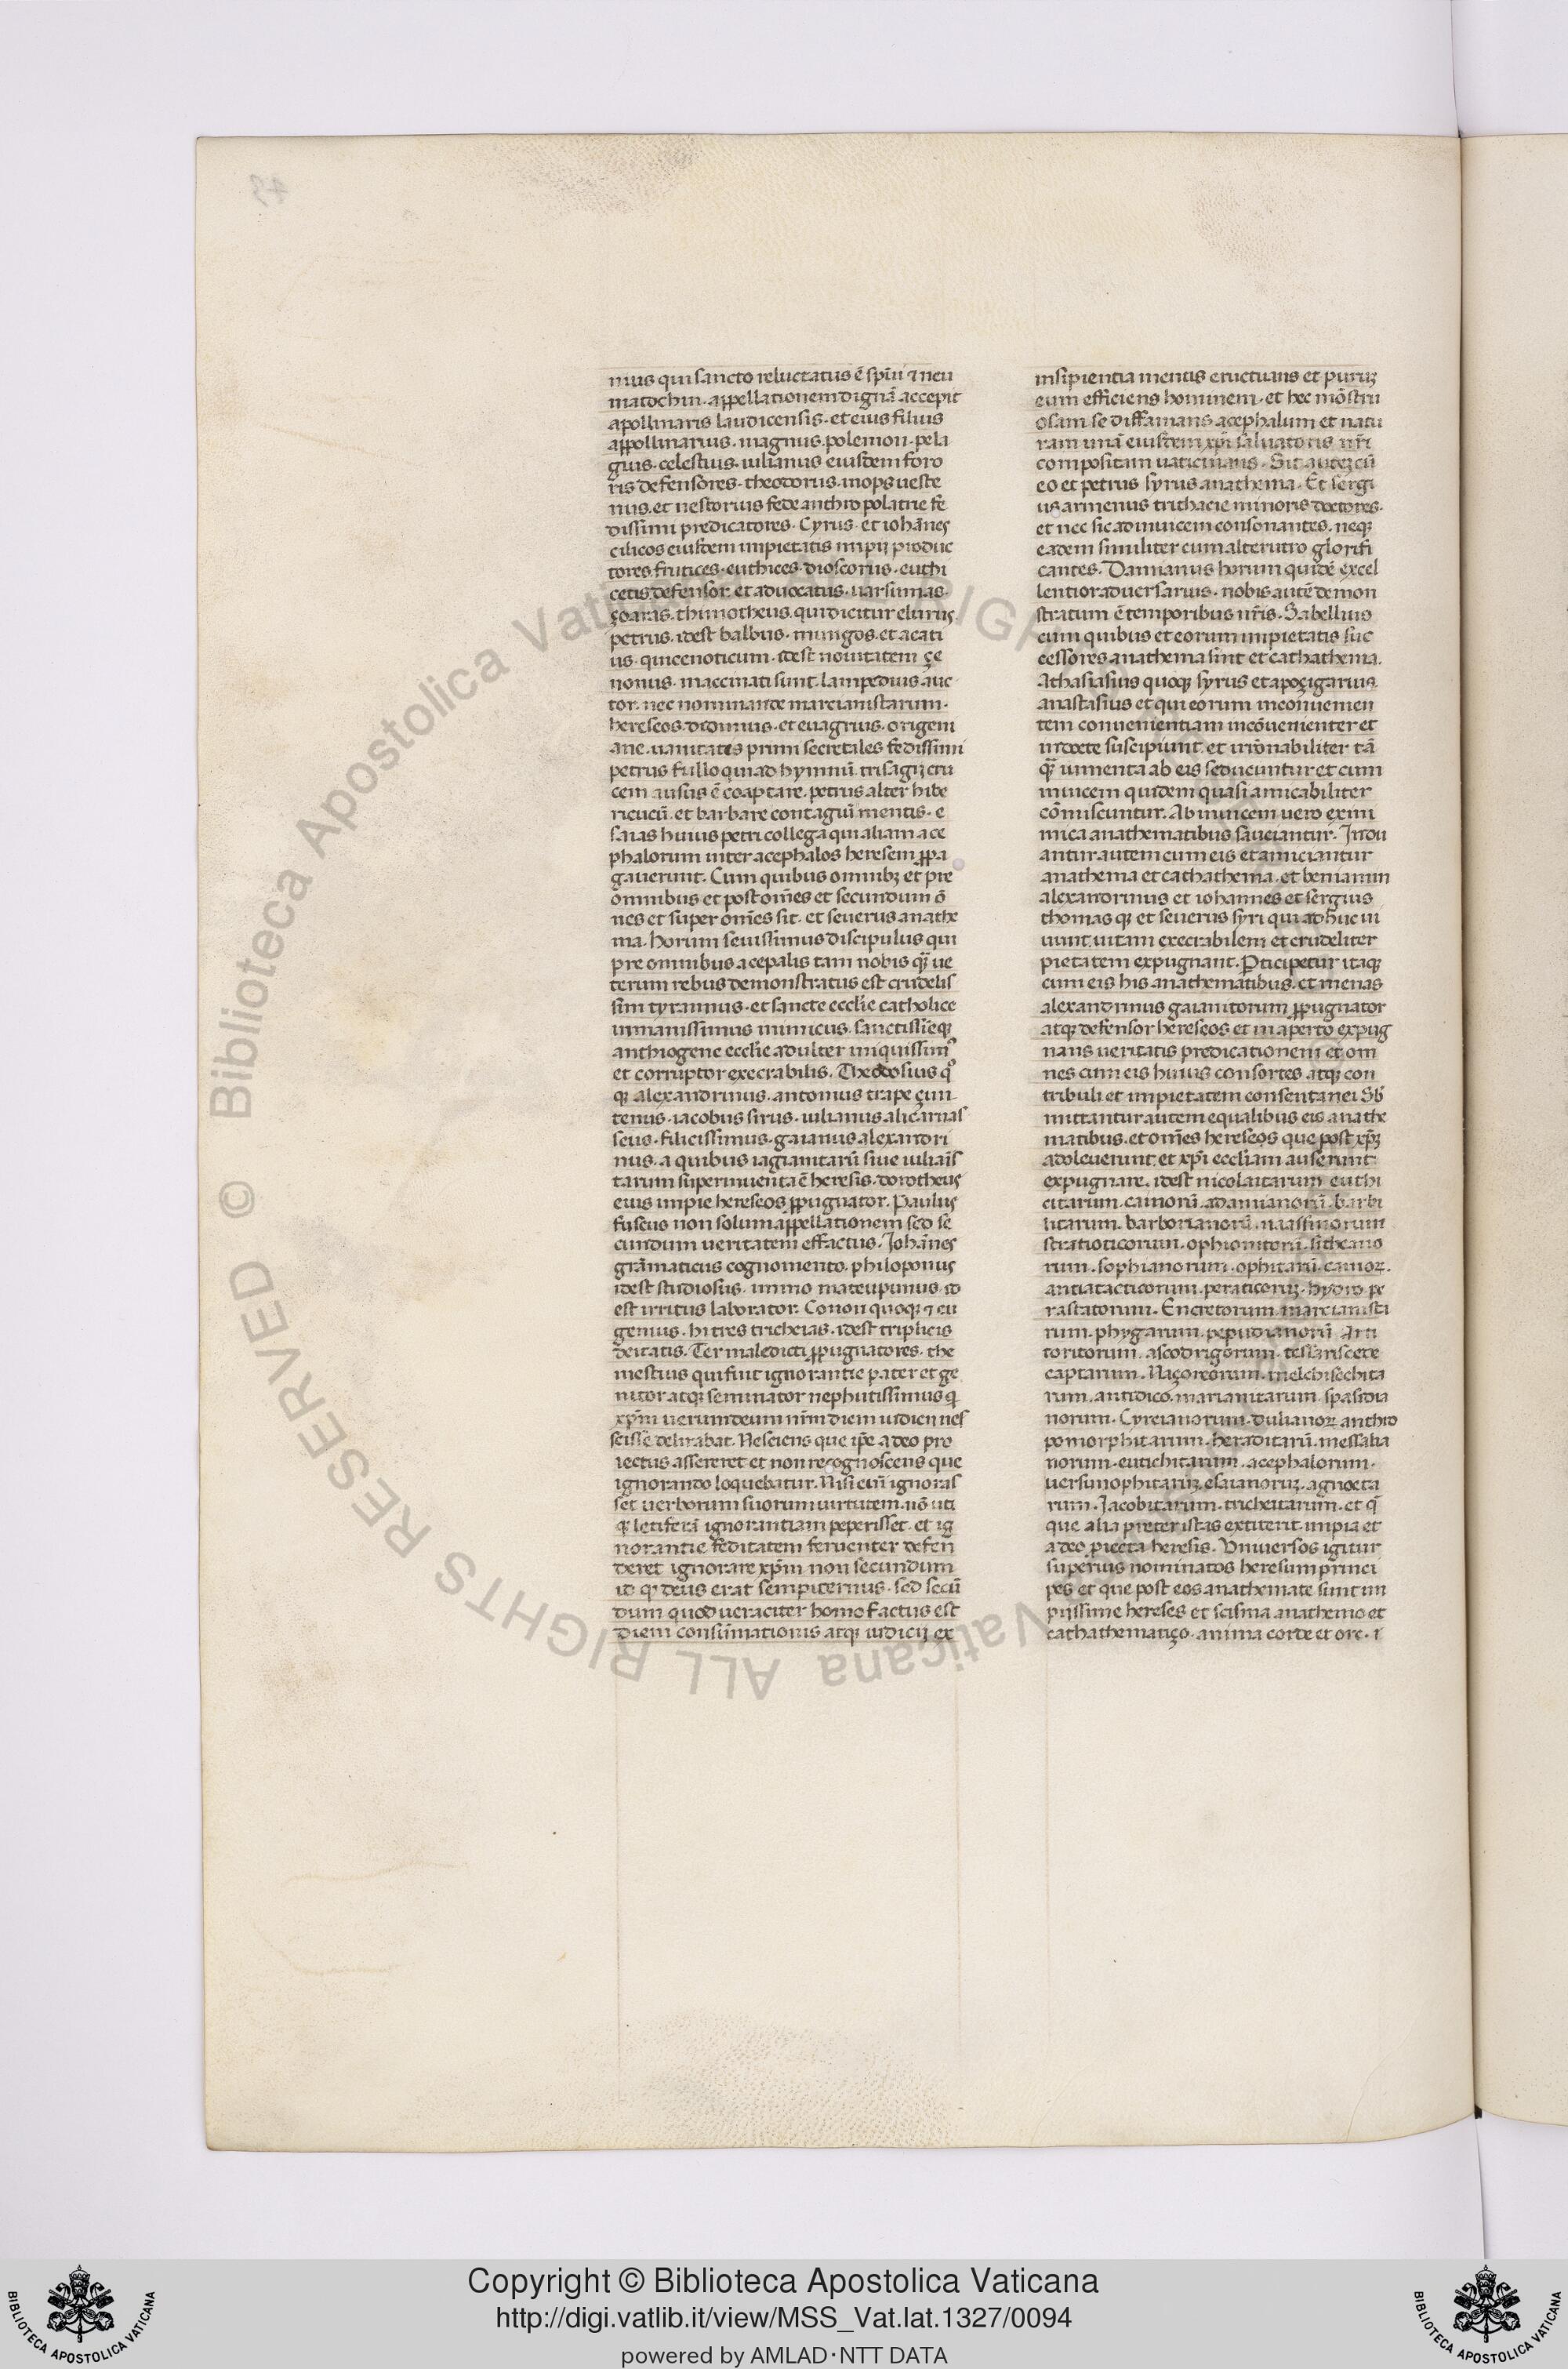 nius qui sancto reluctatus ē spūi ⁊ neu
matochin. appellationem dignā accepit
apollinaris laudicensis. et eius filius
appollinarius. magnus. polemon. pela
gius. celestius. iulianus eiusdem foro
ris defensores. theodorus. mopsueste
nus. et nestorius fede anthropolatrie fe
dissimi predicatores. Cyrus. et iohānes
cilicos eiusdem impietatis impij produc
tores frutices. euthices. dioscorus. euthi
cetis defensor et aduocatus. uarsumas.
çoaras. thimotheus. qui dicitur elurus.
petrus. idest balbus. mungos. et acati
us. qui cenoticum. idest nouitatem çe
nonis. maccinati sunt. lampedius auc
tor. nec nominande marcianistarum.
hereseos. didimus. et euagrius. origeni
ane. uanitatis primi secretales fedissimi
petrus fullo qui ad hymnū trisagij cru
cem ausus ē coaptare. petrus alter hibe
ricucū. et barbare contagiū mentis. e
saias huius petri collega qui aliam ace
phalorum inter acephalos heresem ꝓpa
gauerunt. Cum quibus omnibꝫ et pre
omnibus et post om̄es et secundum ō
nes et super om̄es sit. et seuerus anathe
ma. horum seuissimus discipulus qui
pre omnibus acepalis tam nobis qꝫ̄ ue
terum rebus demonstratus est crudelis
sim tyrannus. et sancte eccl̄ie catholice
inmanissimus inimicus. sanctissīeqꝫ
anthiogene eccl̄ie adulter iniquissim⁹
et corruptor execrabilis. Theodosius q̊
qꝫ alexandrinus. antonius trapeçun
tenus. iacobus sirus. iulianus alicarnas
seus. filicissimus. gaianus alexandri
nus. a quibus iagianitarū siue iulianis
tarum superinuenta ē heresis. dorotheus
eius impie hereseos ꝓpugnator. Paulus
fuscus non solum appellationem sed se
cundum ueritatem effactus. Johānes
grāmaticus cognomento. philoponus
idest studiosus. immo mateupunus id
est irritus laborator. Conon quoqꝫ ⁊ eu
genius. hi tres tricheias. idest triplicis
deitatis. Ter maledicti ꝓpugnatores. the
mestius qui fuit ignorantie pater et ge
nitor atqꝫ seminator nephutissimus q̄
xp̄m uerum deum nr̄m diem iudicij nes
scisse delirabat. Nesciens que ip̄e a deo pro
iectus assereret et non recognoscens que
ignorando loquebatur. Nisi enī ignoras
set uerborum suorum uirtutem. nō uti
qꝫ letiferā ignorantiam peperisset. et ig
norantie feditatem feruenter defen
deret ignorare xp̄m non secundum
id qꝫ deus erat sempiternus. sed secū
dum quod ueraciter homo factus est
diem consūmationis atqꝫ iudicij ex
insipientia mentis eructuans et purūꝫ
eum efficiens hominem. et hec mōstru
osam se diffamans acephalum et natu
ram unā eiusdem xp̄i saluatoris nr̄i
compositam uaticinans. Sit autem cū
eo et petrus syrus anathema. Et sergi
us armenus trithacie minoris doctores.
et nec sic adinuicem consonantes. neqꝫ
eadem similiter cum alterutro glorifi
cantes. Damianus horum quidē excel
lentior aduersarius. nobis autē demon
stratum ē temporibus nr̄is. Sabellius
cum quibus et eorum impietatis suc
cessores anathema sint et cathathema.
Athasiasius quoqꝫ syrus et apoçigarius.
anastasius et qui eorum inconuenien
tem conuenientiam incōuenienter et
indocte suscipiunt. et irrōnabiliter tā
qꝫ̄ iumenta ab eis seducuntur et cum
inuicem quidem quasi amicabiliter
cōmiscuntur. Ab inuicem uero exini
mica anathematibus sauciantur. Indu
antur autem cum eis et amiciantur
anathema et cathathema. et beniamin
alexandrinus et iohannes et sergius
thomas qꝫ et seuerus syri qui adhuc ui
uunt uitam execrabilem et crudeliter
pietatem expugnant. Pticipetur itaqꝫ
cum eis his anathematibus. et menas
alexandrinus gaianitorum ꝓpugnator
atqꝫ defensor hereseos et in aperto expug
nans ueritatis predicationem et om
nes cum eis huius consortes atqꝫ con
tribuli et impietatem consentanei Sb̄
mittantur autem equalibus eis anathe
matibus. et om̄es hereseos que post xp̄ꝫ
adoleuerunt et xp̄i eccl̄iam ause runt
expugnare. idest nicolaitarum euthi
citarum. cainorū. adamianorū. barbi
litarum. barborianorū. naassinorum
stratioticorum. ophionitorū. sitheano
rum. sophianorum. ophitarū. cainoꝝ.
antiatacticorum. peraticorꝫ. hydro pe
rastatorum. Encretorum. marcianisti
rum. phygarum. pepudianorū Arti
toritorum. ascodrigorum. tessariscede
captarum. Naçoreorum. melchisechita
rum. antidicō. marianitarum. spasidia
norum. Cyreianorum. dulianoꝝ anthro
pomorphitarum. heraditarū. messalia
norum. eutichitarum. acephalorum.
uersunophitarūꝫ. esaianorūꝫ. agnoeta
rum. Jacobitarum. tricheitarum. et q̄
que alia preter istas extiterit. impia et
a deo piecta heresis. Vniuersos igitur
superius nominatos heresum princi
pes et que post eos anathemate sunt im
pijssime hereses et scisma. anathemo et
cathathematiço. anima corde et ore. ⁊
© Biblioteca Apostolica Vaticana ALL RIGHTS RESERVED
Copyright © Biblioteca Apostolica Vaticana
http://digi.vatlib.it/view/MSS_Vat.lat.1327/0094
powered by AMLAD·NTT DATA
BIBLIOTECA APOSTOLICA VATICANA
BIBLIOTECA APOSTOLICA VATICANA